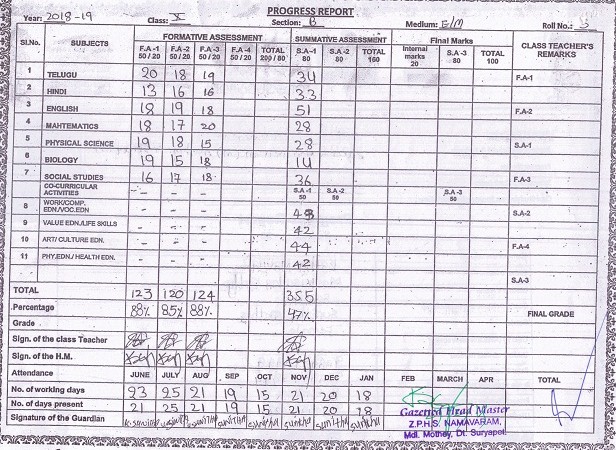 PROGRESS REPORT
Year: 2018-19 Class: X Section: B Medium: E/M Roll No.: 5
Sl.No. SUBJECTS FORMATIVE ASSESSMENT SUMMATIVE ASSESSMENT Final Marks CLASS TEACHER'S REMARKS
F.A-1 50 / 20 F.A-2 50 / 20 F.A-3 50 / 20 F.A-4 50 / 20 TOTAL 200 / 80 S.A-1 80 S.A-2 80 TOTAL 160 Internal marks 20 S.A-3 80 TOTAL 100
1 TELUGU 20 18 19 34 F.A-1
2 HINDI 13 16 16 33
3 ENGLISH 18 19 18 51 F.A-2
4 MAHTEMATICS 18 17 20 28
5 PHYSICAL SCIENCE 19 18 15 28 S.A-1
6 BIOLOGY 19 15 18 14
7 SOCIAL STUDIES 16 17 18 36 F.A-3
CO-CURRICULAR ACTIVITIES - - - S.A -1 50 S.A -2 50 S.A -3 50
8 WORK/COMP. EDN./VOC.EDN - - - S.A-2
9 VALUE EDN./LIFE SKILLS - - - 42
10 ART/ CULTURE EDN. - - - 44 F.A-4
11 PHY.EDN./ HEALTH EDN. - - - 42
S.A-3
TOTAL 123 120 124 355
Percentage 88% 85% 88% 47% FINAL GRADE
Grade
Sign. of the class Teacher
Sign. of the H.M.
Attendance JUNE JULY AUG SEP OCT NOV DEC JAN FEB MARCH APR TOTAL
No. of working days 23 25 21 19 15 21 20 18
No. of days present 21 25 21 19 15 21 20 18
Signature of the Guardian sunitha sunitha sunitha sunitha sunitha sunitha
Gazetted Head Master
Z.P.H.S. NAMAVARAM,
Mdl. Mothey, Dt. Suryapet